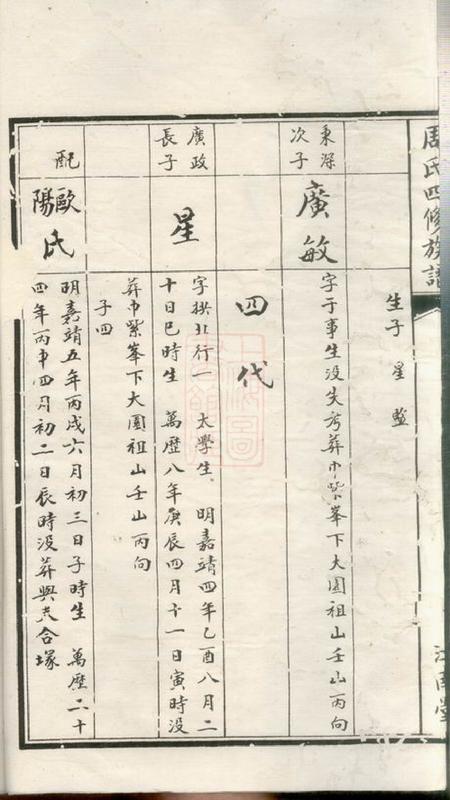 周氏四修族譜
生子 星
秉深次子
廣敏
字于事生没失考葬巾紫峯下大園祖山壬山丙向
四代
廣政長子
星
字拱北行一 太學生 明嘉靖四年乙酉八月二
十日巳時生 萬歷八年庚辰四月十一日寅時没
葬巾紫峯下大園祖山壬山丙向
子四
配
歐陽氏
明嘉靖五年丙戌六月初三日子時生 萬歷二十
四年丙申四月初二日辰時没葬與夫合塚